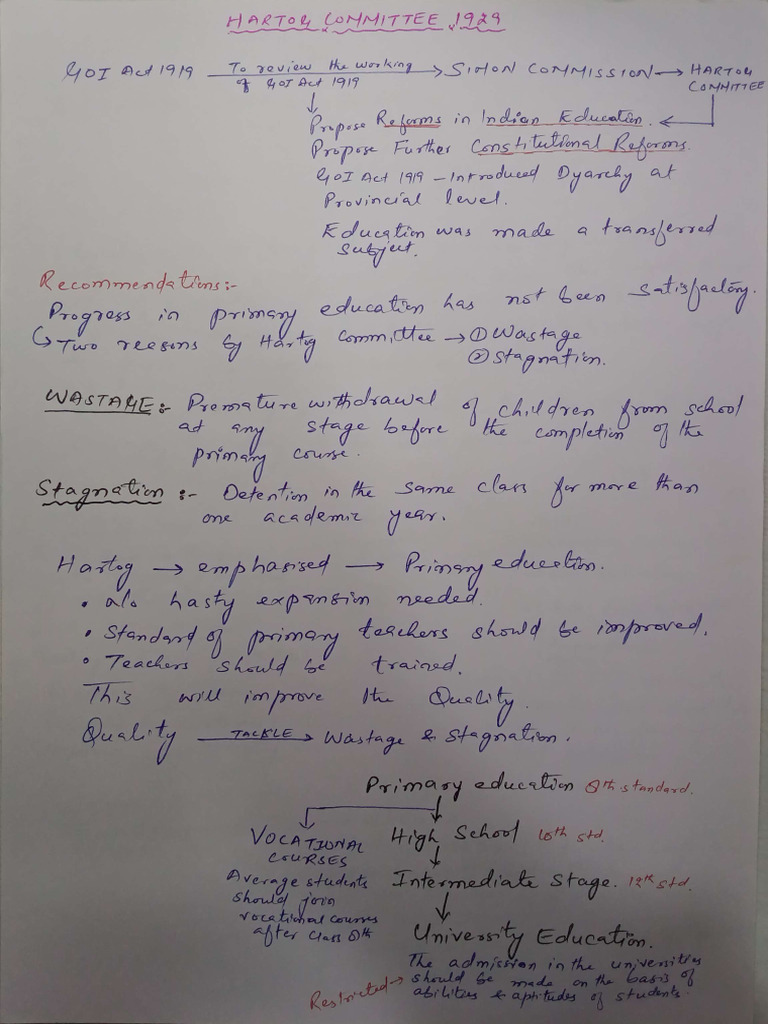 HARTOG COMMITTEE 1929
GOI Act 1919 To review the working of GOI Act 1919 → SIMON COMMISSION → HARTOG COMMITTEE
Propose Reforms in Indian Education.
Propose Further Constitutional Reforms.
GOI Act 1919 – Introduced Dyarchy at
Provincial level.
Education was made a transferred
subject.
Recommendations:-
Progress in primary education has not been satisfactory.
↳ Two reasons by Hartog committee → ① Wastage
② Stagnation.
WASTAGE:- Premature withdrawal of children from school
at any stage before the completion of the
primary course.
Stagnation :- Detention in the same class for more than
one academic year.
Hartog → emphasised → Primary education.
• No hasty expansion needed.
• Standard of primary teachers should be improved.
• Teachers should be trained.
This will improve the Quality.
Quality TACKLE → Wastage & Stagnation.
Primary education 8th standard.
VOCATIONAL
COURSES
Average students
should join
vocational courses
after class 8th
High School 10th std.
Intermediate Stage. 12th std.
University Education.
The admission in the universities
Restricted → should be made on the basis of
abilities & aptitudes of students.